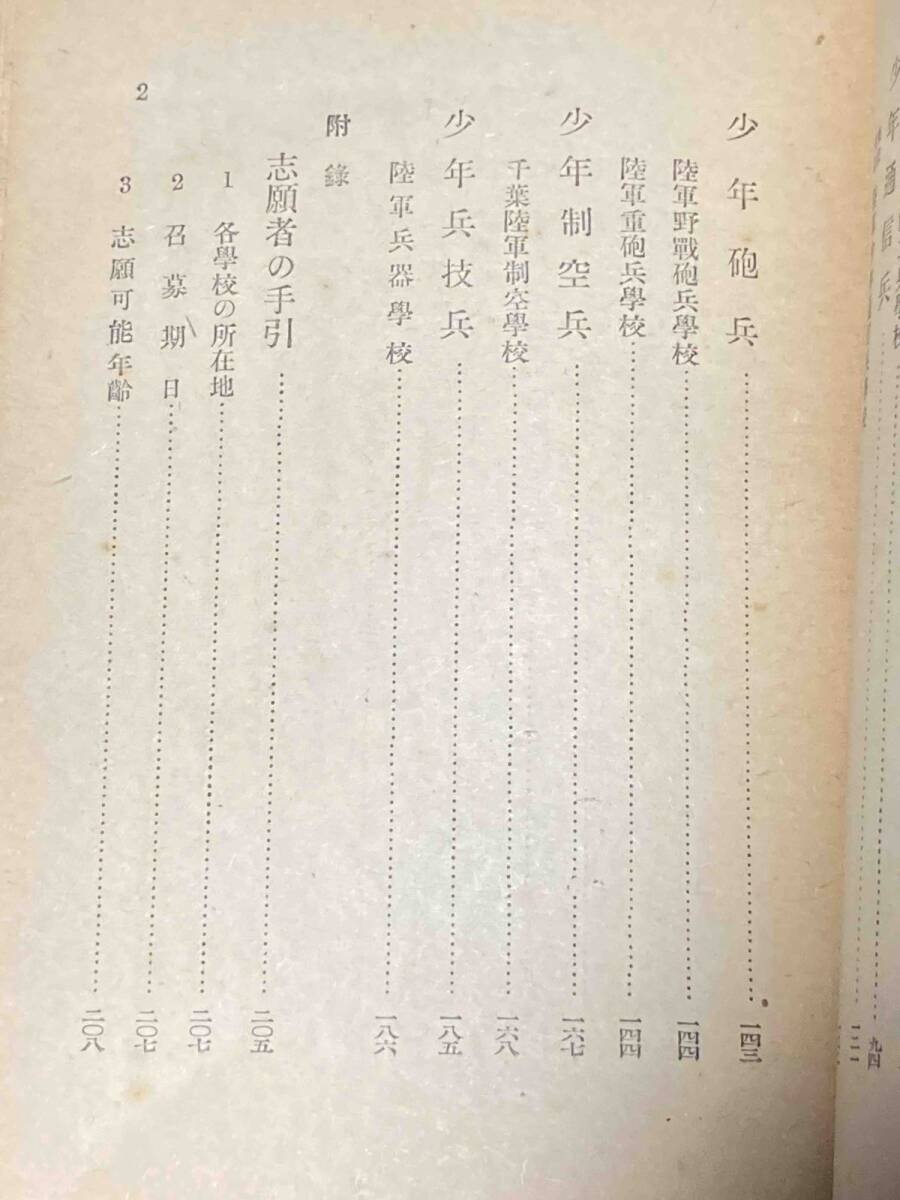 少年通信兵
九四
少年砲兵 一四三
陸軍野戰砲兵學校 一四四
陸軍重砲兵學校 一四四
少年制空兵 一六七
千葉陸軍制空學校 一六八
少年兵技兵 一八五
陸軍兵器學校 一八六
附錄
志願者の手引 二〇五
1 各學校の所在地 二〇七
2 召募期日 二〇七
3 志願可能年齡 二〇八
2